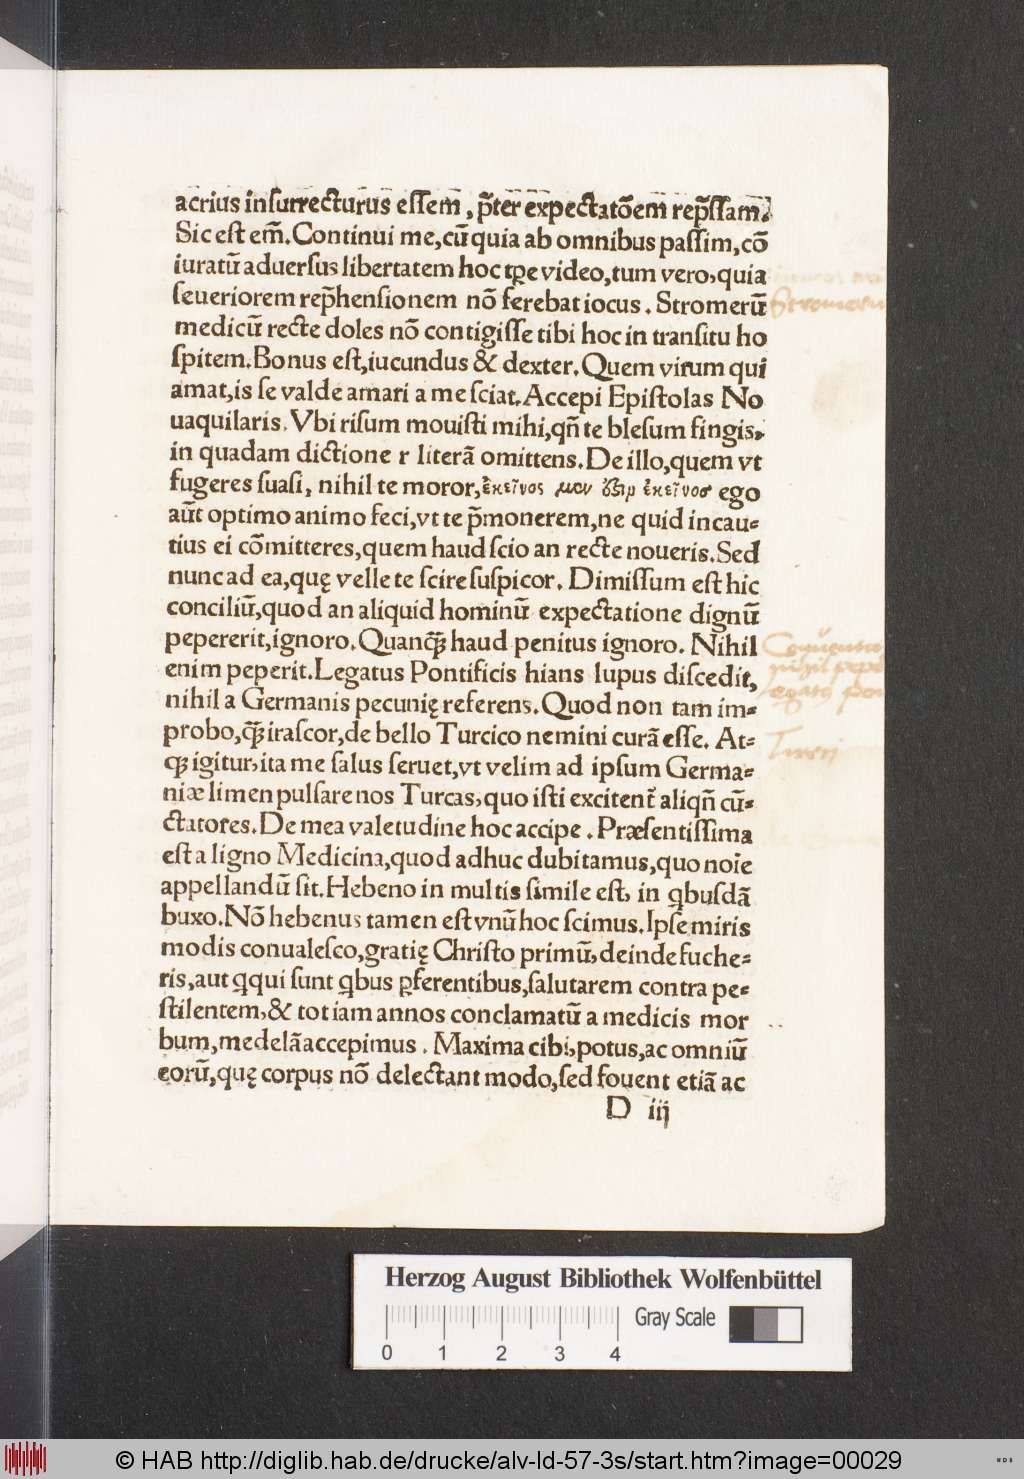 acrius inſurrecturus eſſem, p̃ter expectatõem rep̃ſſam.
Sic eſt em̃. Continui me, cũ quia ab omnibus paſſim, cõ
iuratũ aduerſus libertatem hoc tꝑe video, tum vero, quia
ſeueriorem rep̃henſionem nõ ferebat iocus. Stromerũ
medicũ recte doles nõ contigiſſe tibi hoc in tranſitu ho
ſpitem. Bonus eſt, iucundus & dexter. Quem virum qui
amat, is ſe valde amari a me ſciat. Accepi Epiſtolas No
uaquilaris. Vbi riſum mouiſti mihi, qñ te bleſum fingis,
in quadam dictione r literã omittens. De illo, quem vt
fugeres ſuaſi, nihil te moror, ἐκεῖνος μεν γαρ ἐκεῖνος ego
aũt optimo animo feci, vt te p̃monerem, ne quid incau⸗
tius ei cõmitteres, quem haud ſcio an recte noueris. Sed
nunc ad ea, quę velle te ſcire ſuſpicor. Dimiſſum eſt hic
conciliũ, quod an aliquid hominũ expectatione dignũ
pepererit, ignoro. Quanq̃ haud penitus ignoro. Nihil
enim peperit. Legatus Pontificis hians lupus diſcedit,
nihil a Germanis pecunię referens. Quod non tam im⸗
probo, q̃ iraſcor, de bello Turcico nemini curã eſſe. At⸗
qꝫ igitur, ita me ſalus ſeruet, vt velim ad ipſum Germa⸗
niæ limen pulſare nos Turcas, quo iſti excitent̃ aliqñ cũ⸗
ctatores. De mea valetudine hoc accipe. Præſentiſſima
eſt a ligno Medicina, quod adhuc dubitamus, quo noĩe
appellandũ ſit. Hebeno in multis ſimile eſt, in qbuſdã
buxo. Nõ hebenus tamen eſt vnũ hoc ſcimus. Ipſe miris
modis conualeſco, gratię Chriſto primũ, deinde fuche⸗
ris, aut qqui ſunt qbus ꝑferentibus, ſalutarem contra pe⸗
ſtilentem, & tot iam annos conclamatũ a medicis mor
bum, medelã accepimus. Maxima cibi, potus, ac omniũ
eorũ, quę corpus nõ delectant modo, ſed fouent etiã ac
D iij
Stromerũ
nihil
Turci
Herzog August Bibliothek Wolfenbüttel
Gray Scale
0 1 2 3 4
© HAB http://diglib.hab.de/drucke/alv-ld-57-3s/start.htm?image=00029